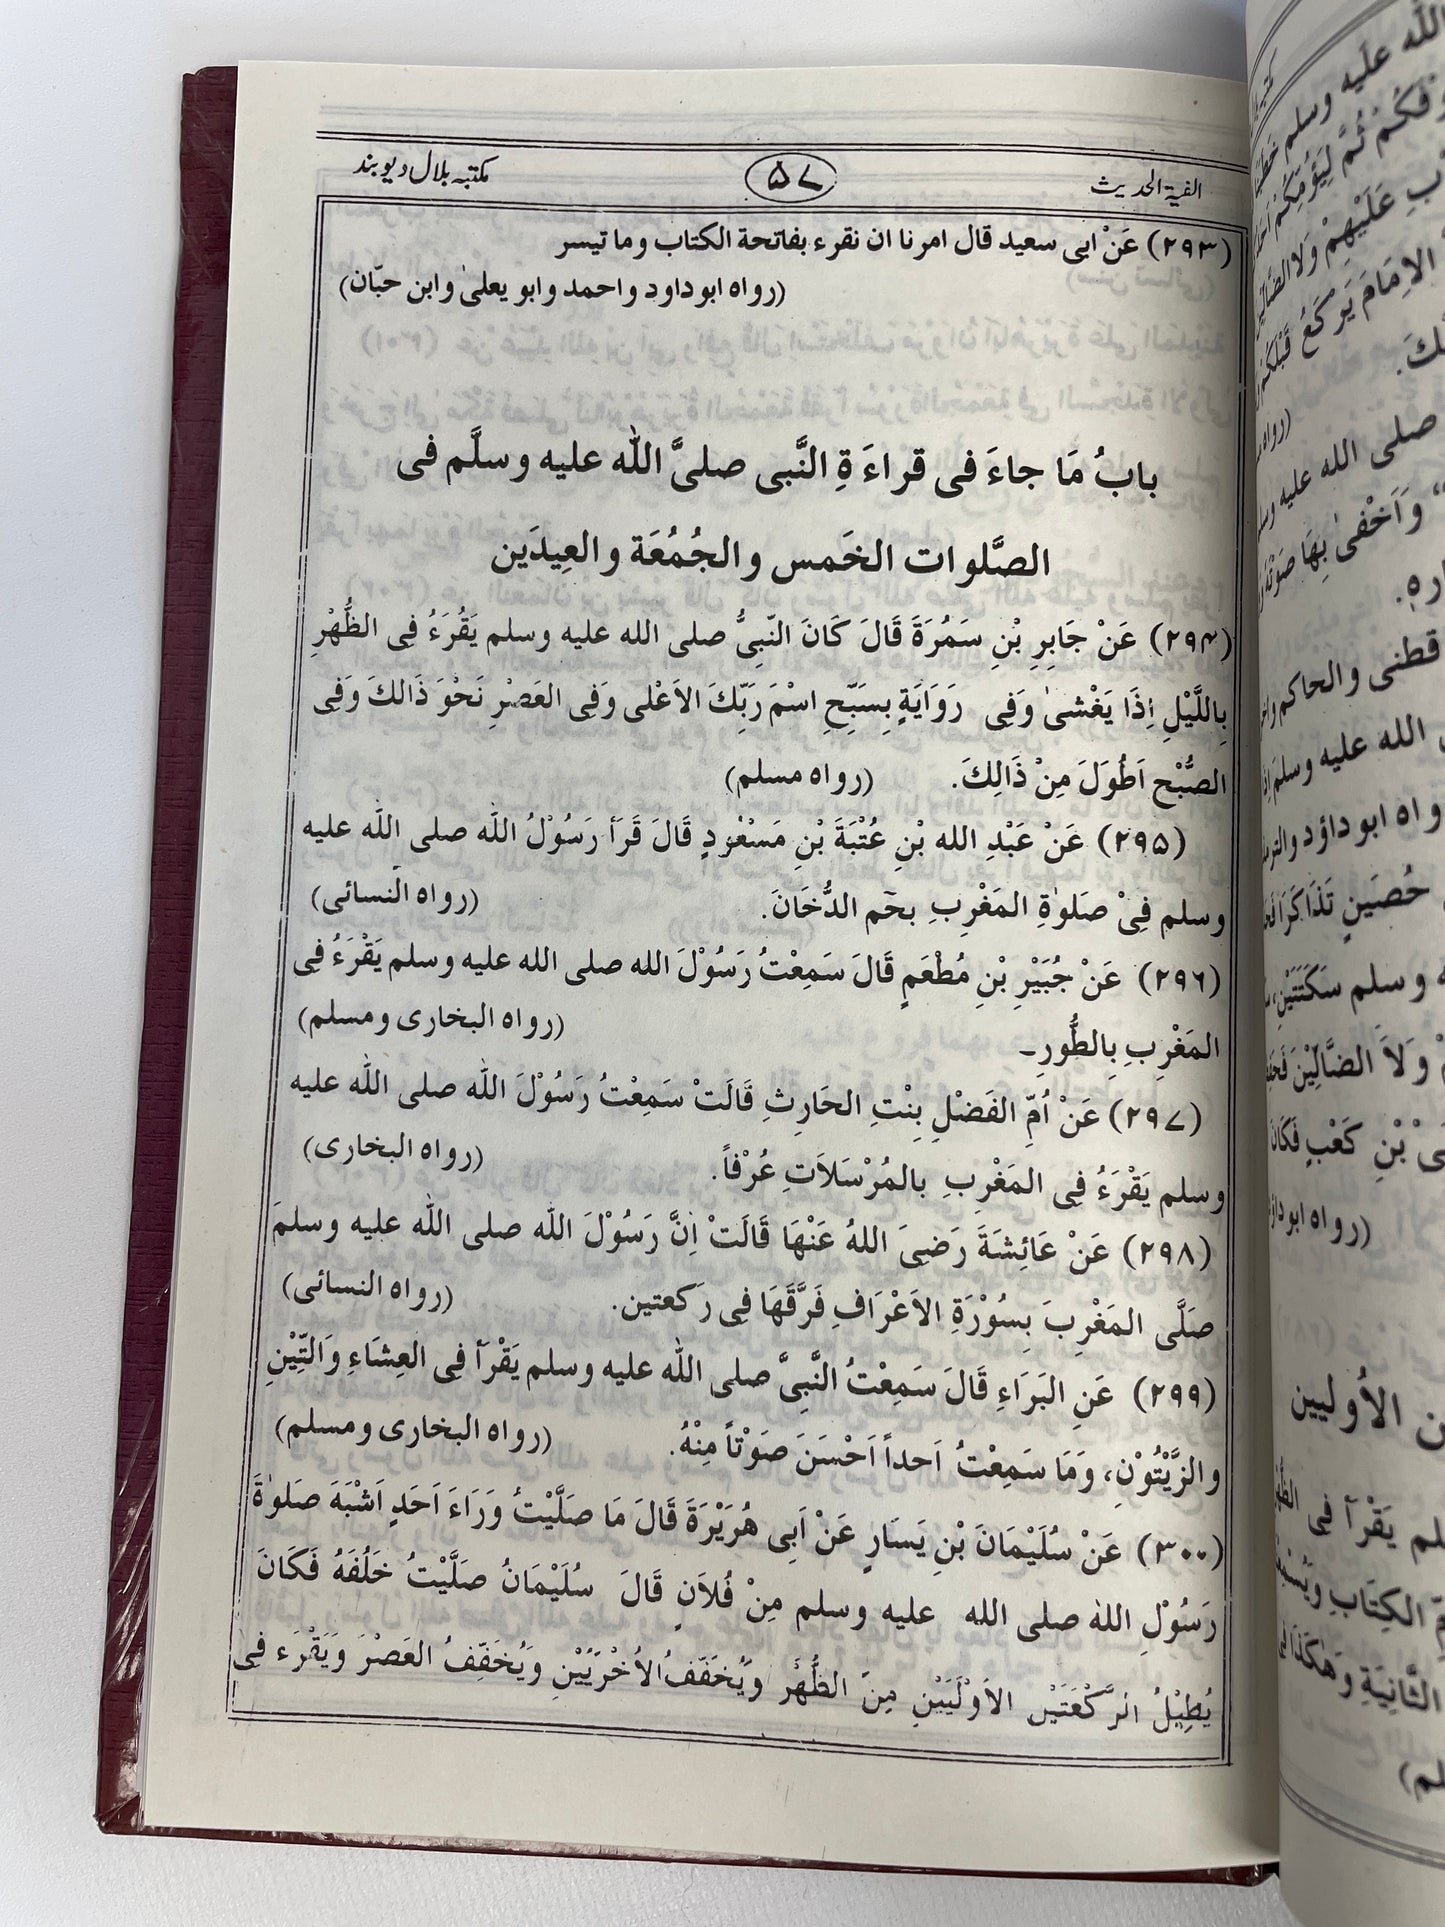 الفية الحديث
۵۷
مكتبه بلال ديوبند
(۲۹۳) عَنْ ابى سعيد قال امرنا ان نقرء بفاتحة الكتاب وما تيسر
(رواه ابوداود واحمد وابو يعلىٰ وابن حبّان)
بابُ مَا جاءَ فى قراءَةِ النَّبى صلىَّ اللّٰه عليه وسلَّم فى
الصَّلوات الخَمس والجُمُعَة والعِيدَين
(۲۹۴) عَنْ جَابِرِ بْنِ سَمُرَةَ قَالَ كَانَ النّبِىُّ صلى الله عليه وسلم يَقُرَءُ فِى الظُّهْرِ
بِاللَّيْلِ اِذَا يَغْشىٰ وَفِى رَوَايَةٍ بِسَبِّحِ اسْمَ رَبِّكَ الاَعْلى وَفِى العَصْرِ نَحْوَ ذَالكَ وَفِى
الصُّبْح اَطُوَلَ مِنْ ذَالِكَ. (رواه مسلم)
(۲۹۵) عَنْ عَبْدِ الله بْنِ عُتْبَةَ بْنِ مَسْعُودٍ قَالَ قَرَأ رَسُوْلُ اللّٰه صلى اللّٰه عليه
وسلم فِىْ صَلوٰةِ المَغْرِبِ بحٓم الدُّخَانَ. (رواه النسائى)
(۲۹۶) عَنْ جُبَيْرِ بْنِ مُطْعَمٍ قَالَ سَمِعْتُ رَسُوْلَ الله صلى الله عليه وسلم يَقْرَءُ فِى
المَغْرِبِ بِالطُّورِ۔ (رواه البخارى ومسلم)
(۲۹۷) عَنْ اُمِّ الفَضْلِ بِنْتِ الحَارِثِ قَالَتْ سَمِعْتُ رَسُوْلَ اللّٰه صلى اللّٰه عليه
وسلم يَقْرَءُ فِى المَغْربِ بالمُرْسَلاَتِ عُرْفاً. (رواه البخارى)
(۲۹۸) عَنْ عَائِشَةَ رَضِىَ اللهُ عَنْهَا قَالَتْ اِنَّ رَسُوْلَ اللّٰه صلى اللّٰه عليه وسلمَ
صَلَّى المَغْرِبَ بِسُوْرَةِ الاَعْرَافِ فَرَّقَهَا فِى رَكعتين. (رواه النسائى)
(۲۹۹) عَنِ البَرَاءِ قَالَ سَمِعْتُ النَّبِىَّ صلى اللّٰه عليه وسلم يَقْرَأ فِى العِشَاءِ وَالتِّيْنِ
والزَّيْتُوْنِ، وَمَا سَمِعْتُ اَحداً اَحْسَنَ صَوْتاً مِنْهُ. (رواه البخارى ومسلم)
(۳۰۰) عَنْ سُلَيْمَانَ بْنِ يَسَارٍ عَنْ اَبِى هُرَيْرَةَ قَالَ مَا صَلَّيْتُ وَرَاءَ اَحَدٍ اَشْبَهَ صَلوٰةً
رَسُوْلِ اللهٰ صلى الله عليه وسلم مِنْ فُلاَنٍ قَالَ سُلَيْمَانُ صَلَّيْتُ خَلُفَهُ فَكَانَ
يُطِيْلُ الرَّكْعَتَيْنِ الاَوْلَيَيْنِ مِنَ الظُّهْرِ وَيُخَفِّفُ الاُخْرَيَيْنِ وَيُخَفِّفُ العَصْرَ وَيَقْرَء فِى